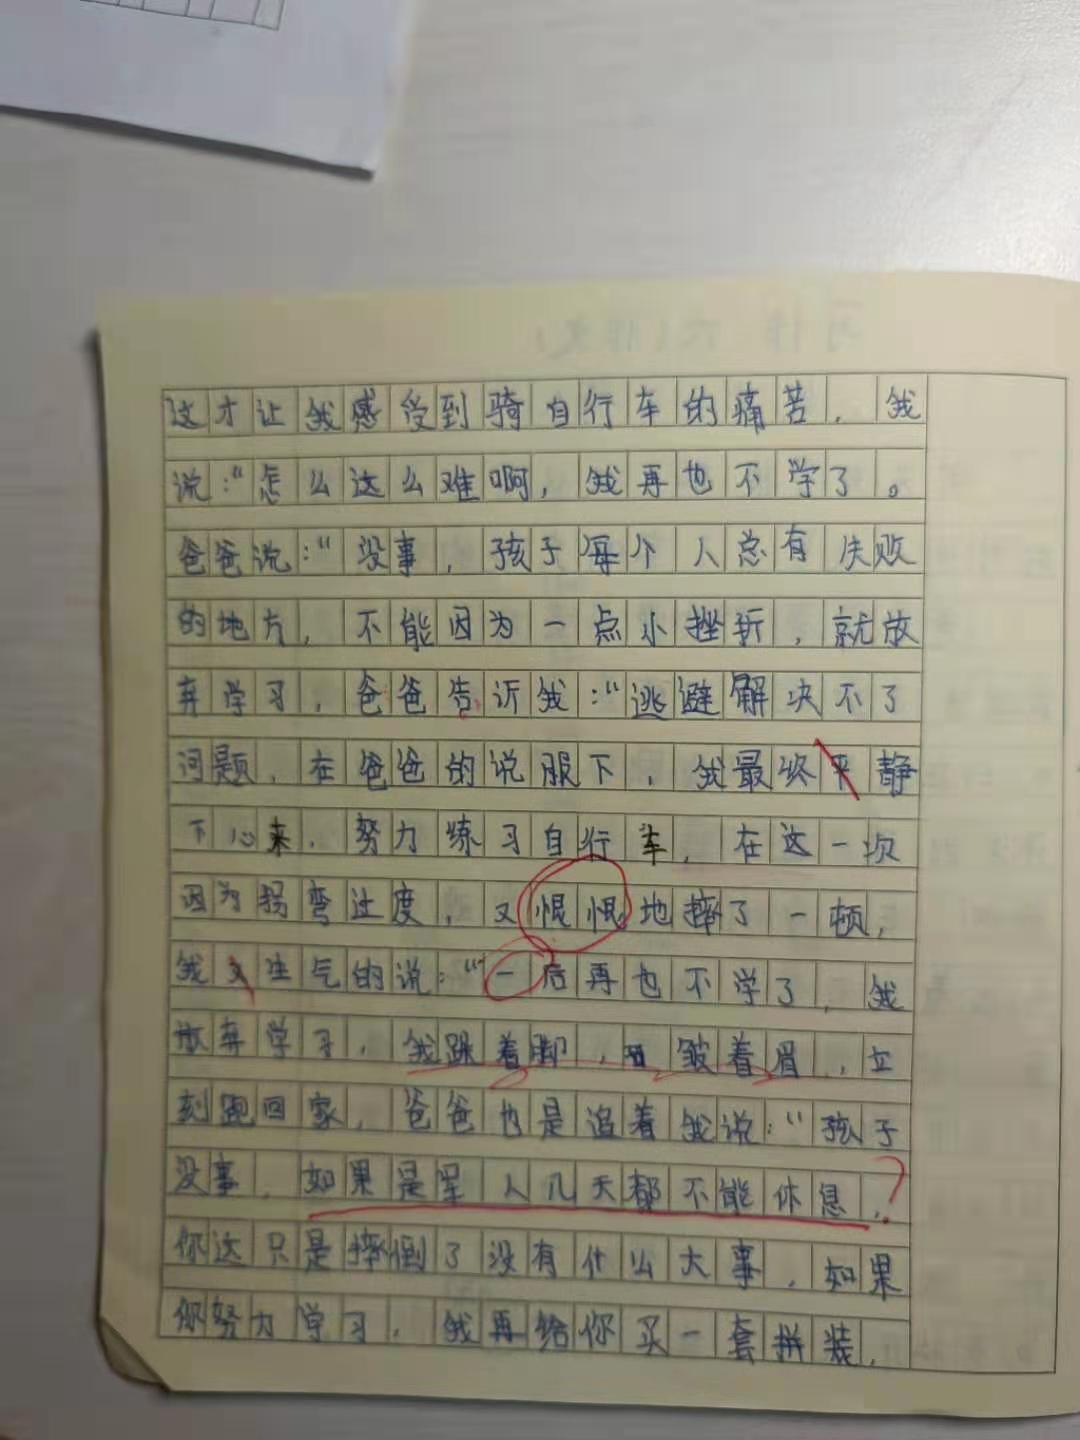 这才让我感受到骑自行车的痛苦，我
说：“怎么这么难啊，我再也不学了。
爸爸说：“没事，孩子每个人总有失败
的地方，不能因为一点小挫折，就放
弃学习，爸爸告诉我：“逃避解决不了
问题，在爸爸的说服下，我最终平静
下心来，努力练习自行车，在这一次
因为拐弯过度，又恨恨地摔了一顿，
我又生气的说：“一后再也不学了，我
放弃学习，我跺着脚，皱着眉，立
刻跑回家，爸爸也是追着我说：“孩子
没事，如果是军人几天都不能休息，？
你这只是摔倒了没有什么大事，如果
你努力学习，我再给你买一套拼装，